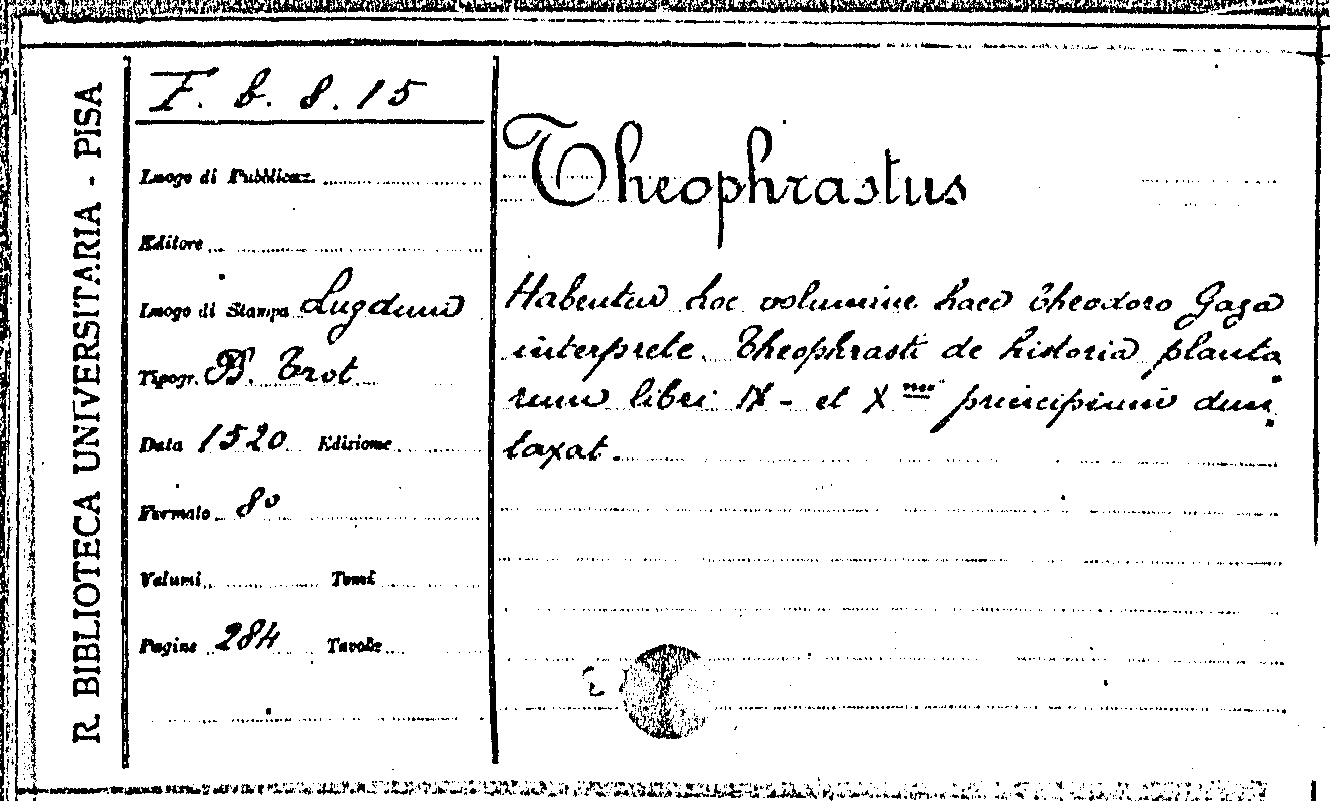 R. BIBLIOTECA UNIVERSITARIA - PISA
F. b. 8. 15
Luogo di Pubblicaz.
Editore
Luogo di Stampa Lugduni
Tipogr. B. Trot
Data 1520 Edizione
Formato 8º
Volumi Tomi
Pagine 284 Tavole
Theophrastus
Habentur hoc volumine haec Theodoro Gaza
interprete. Theophrasti de historia planta
rum libri IX - et X mi principium dun
taxat.